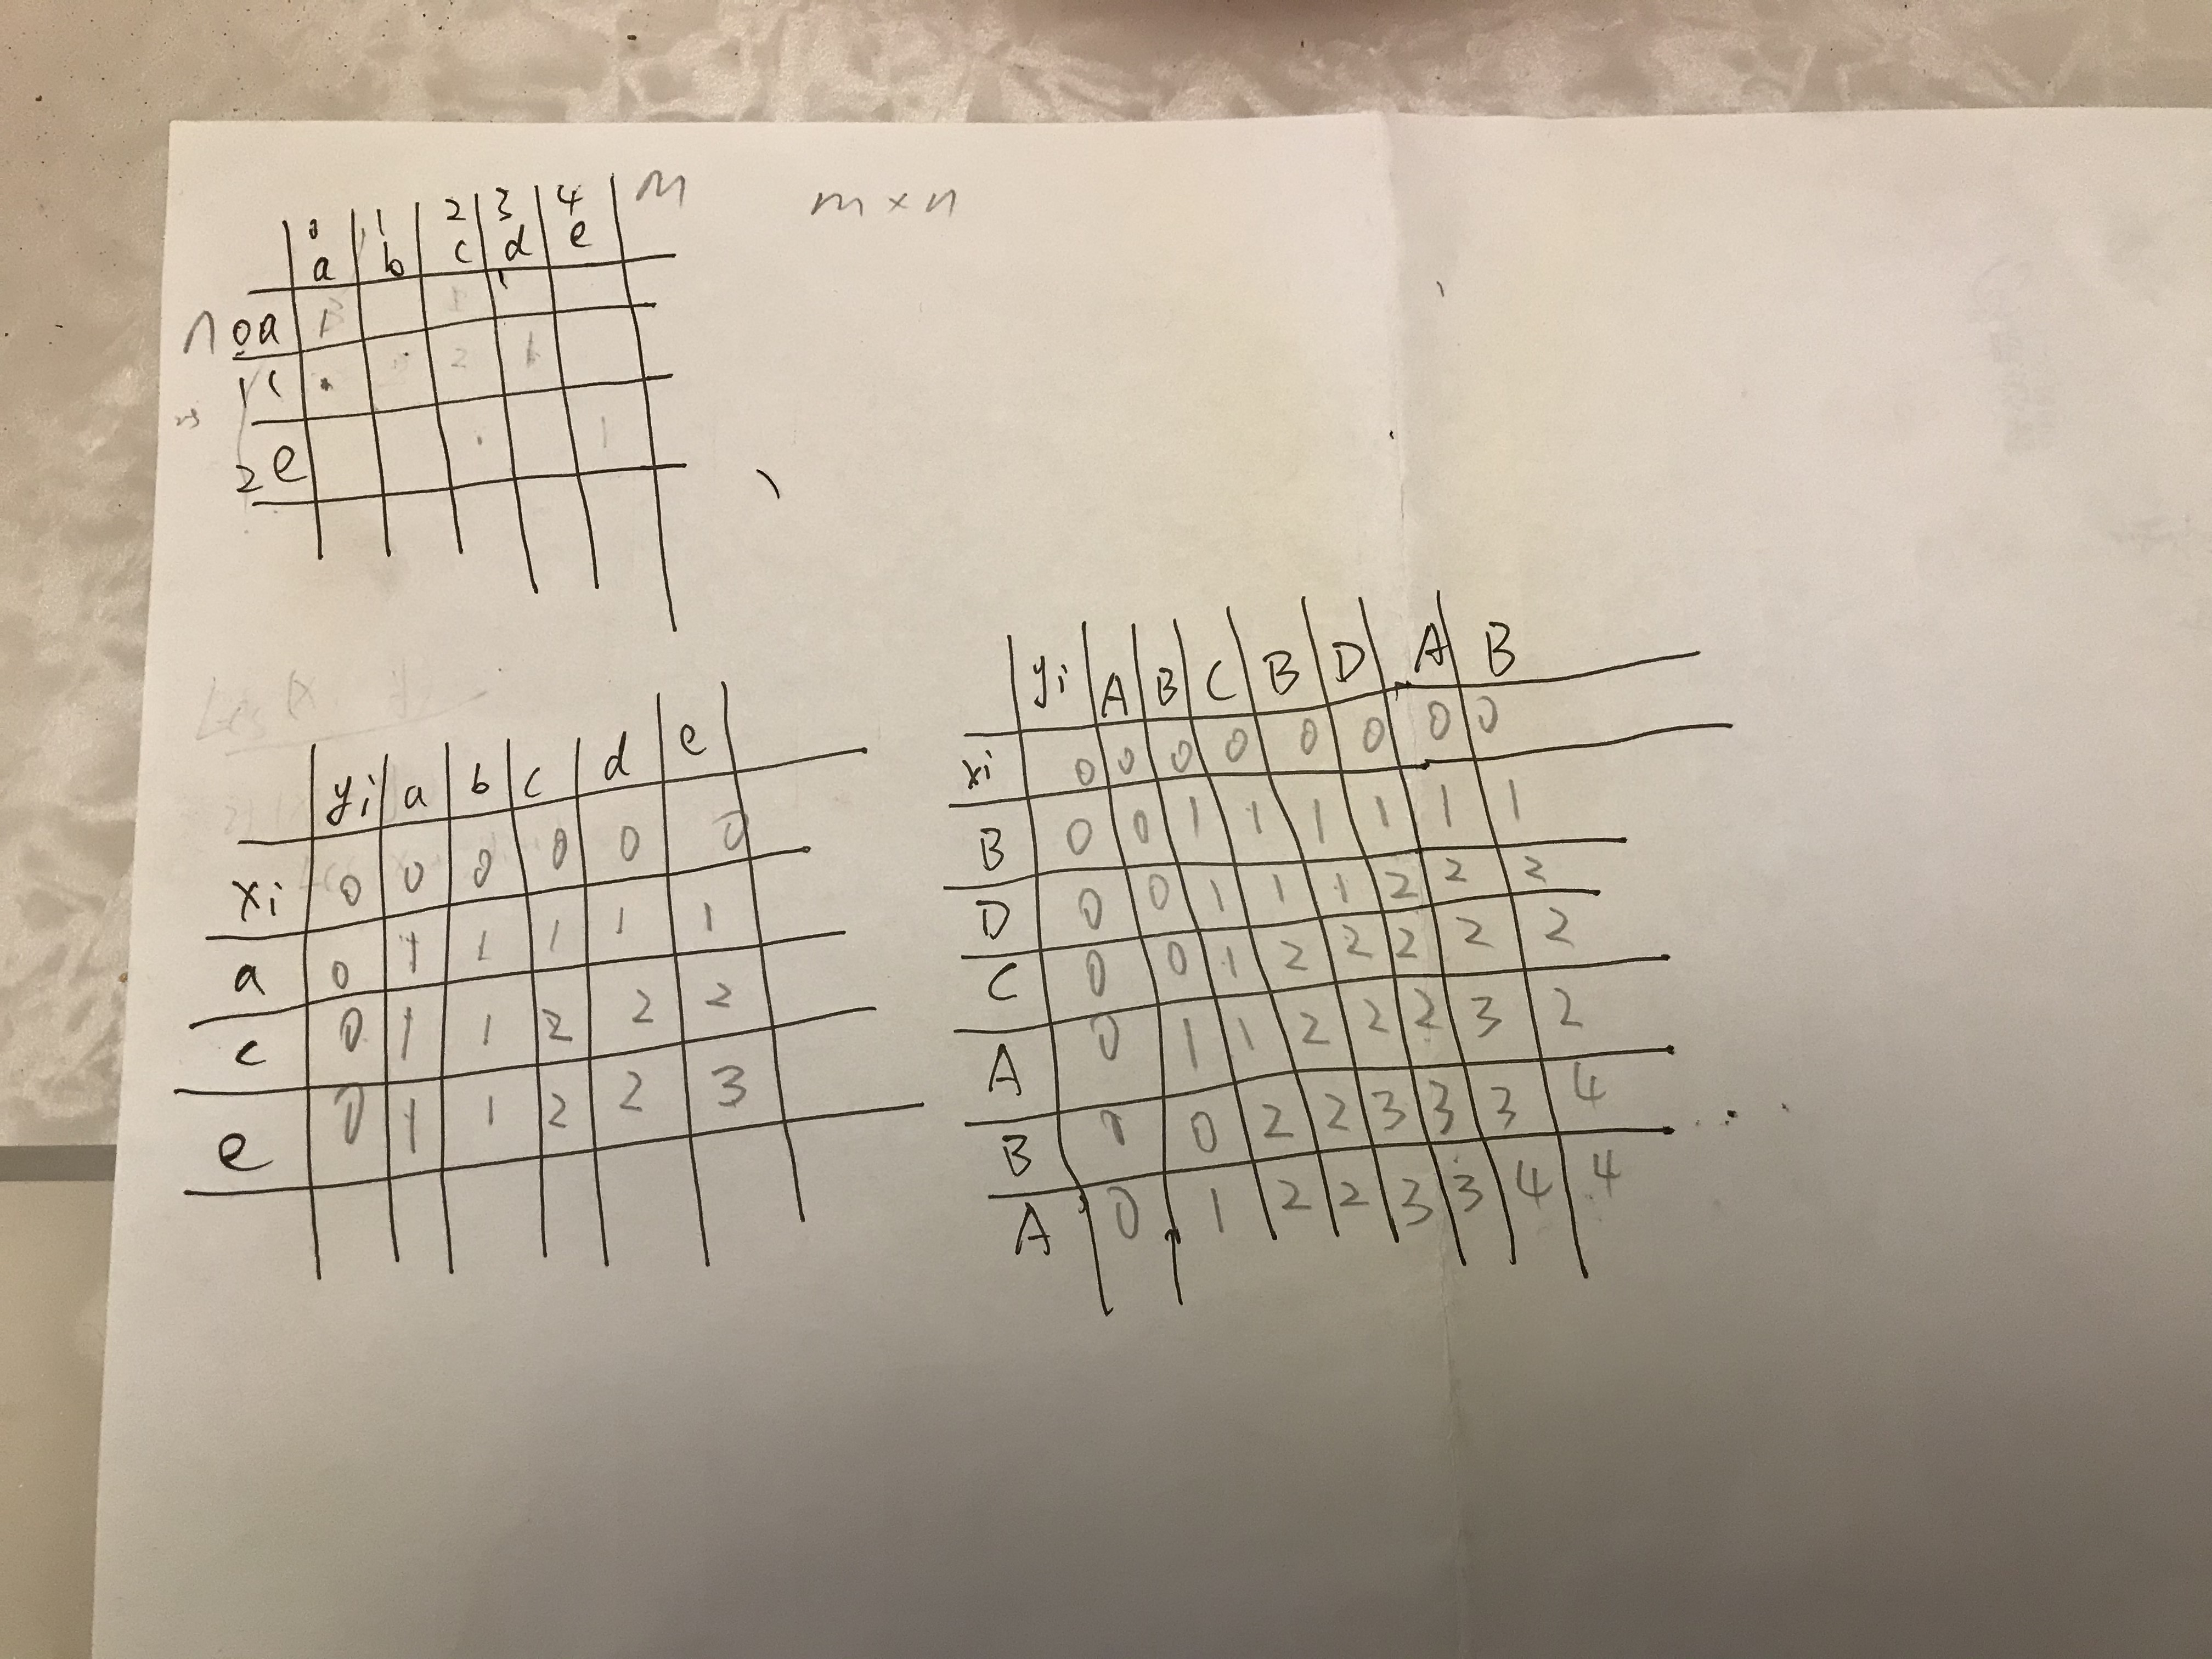 0 1 2 3 4 M m × n
a b c d e
n 0 a 1
1 c 2 1
2 e 1
Lcs (x
yi a b c d e
xi 0 0 0 0 0 0
a 0 1 1 1 1 1
c 0 1 1 2 2 2
e 0 1 1 2 2 3
yi A B C B D A B
xi 0 0 0 0 0 0 0 0
B 0 0 1 1 1 1 1 1
D 0 0 1 1 1 2 2 2
C 0 0 1 2 2 2 2 2
A 0 1 1 2 2 2 3 2
B 0 2 2 3 3 3 4
A 0 1 2 2 3 3 4 4